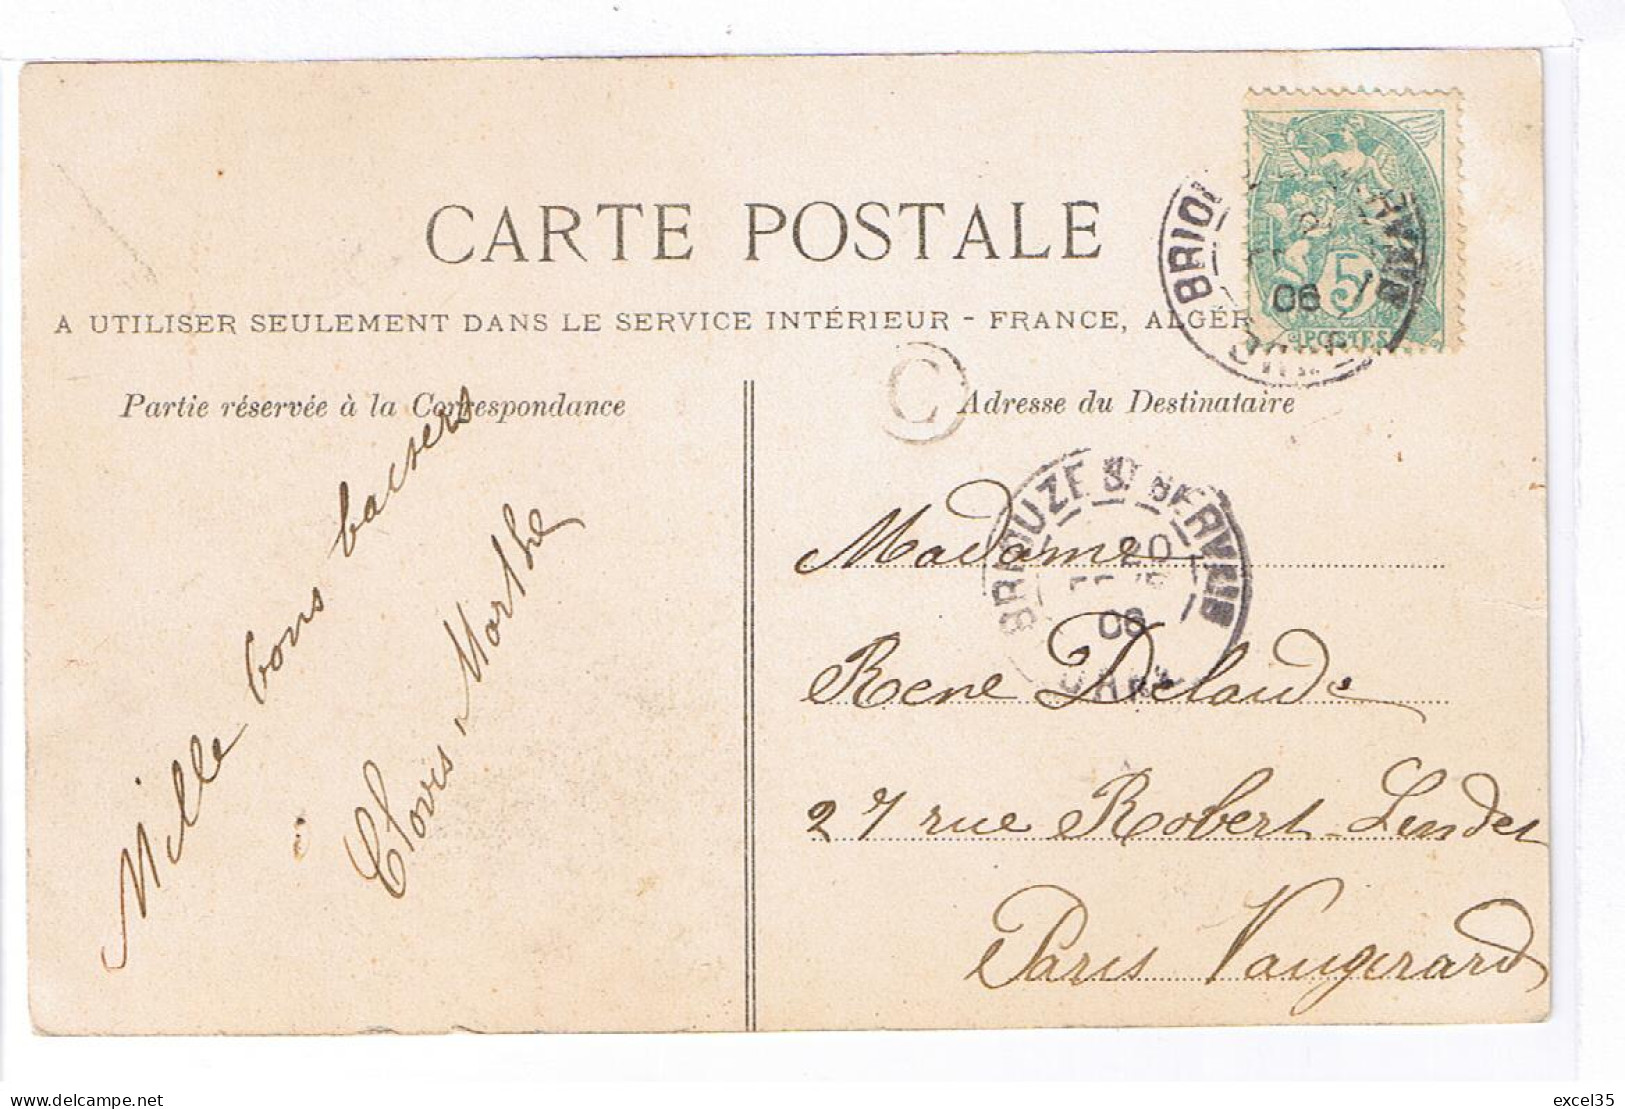 CARTE POSTALE
A UTILISER SEULEMENT DANS LE SERVICE INTÉRIEUR - FRANCE, ALGÉR
Partie réservée à la Correspondance
Mille bons baisers
Clovis Marthe
C
Adresse du Destinataire
Madame
Rene Delaude
27 rue Robert Lindet
Paris Vaugirard
BRIOUZE St GERVAIS
20
06
ORNE
BRIOU
06
5
POSTES
delcampe.net
excel35